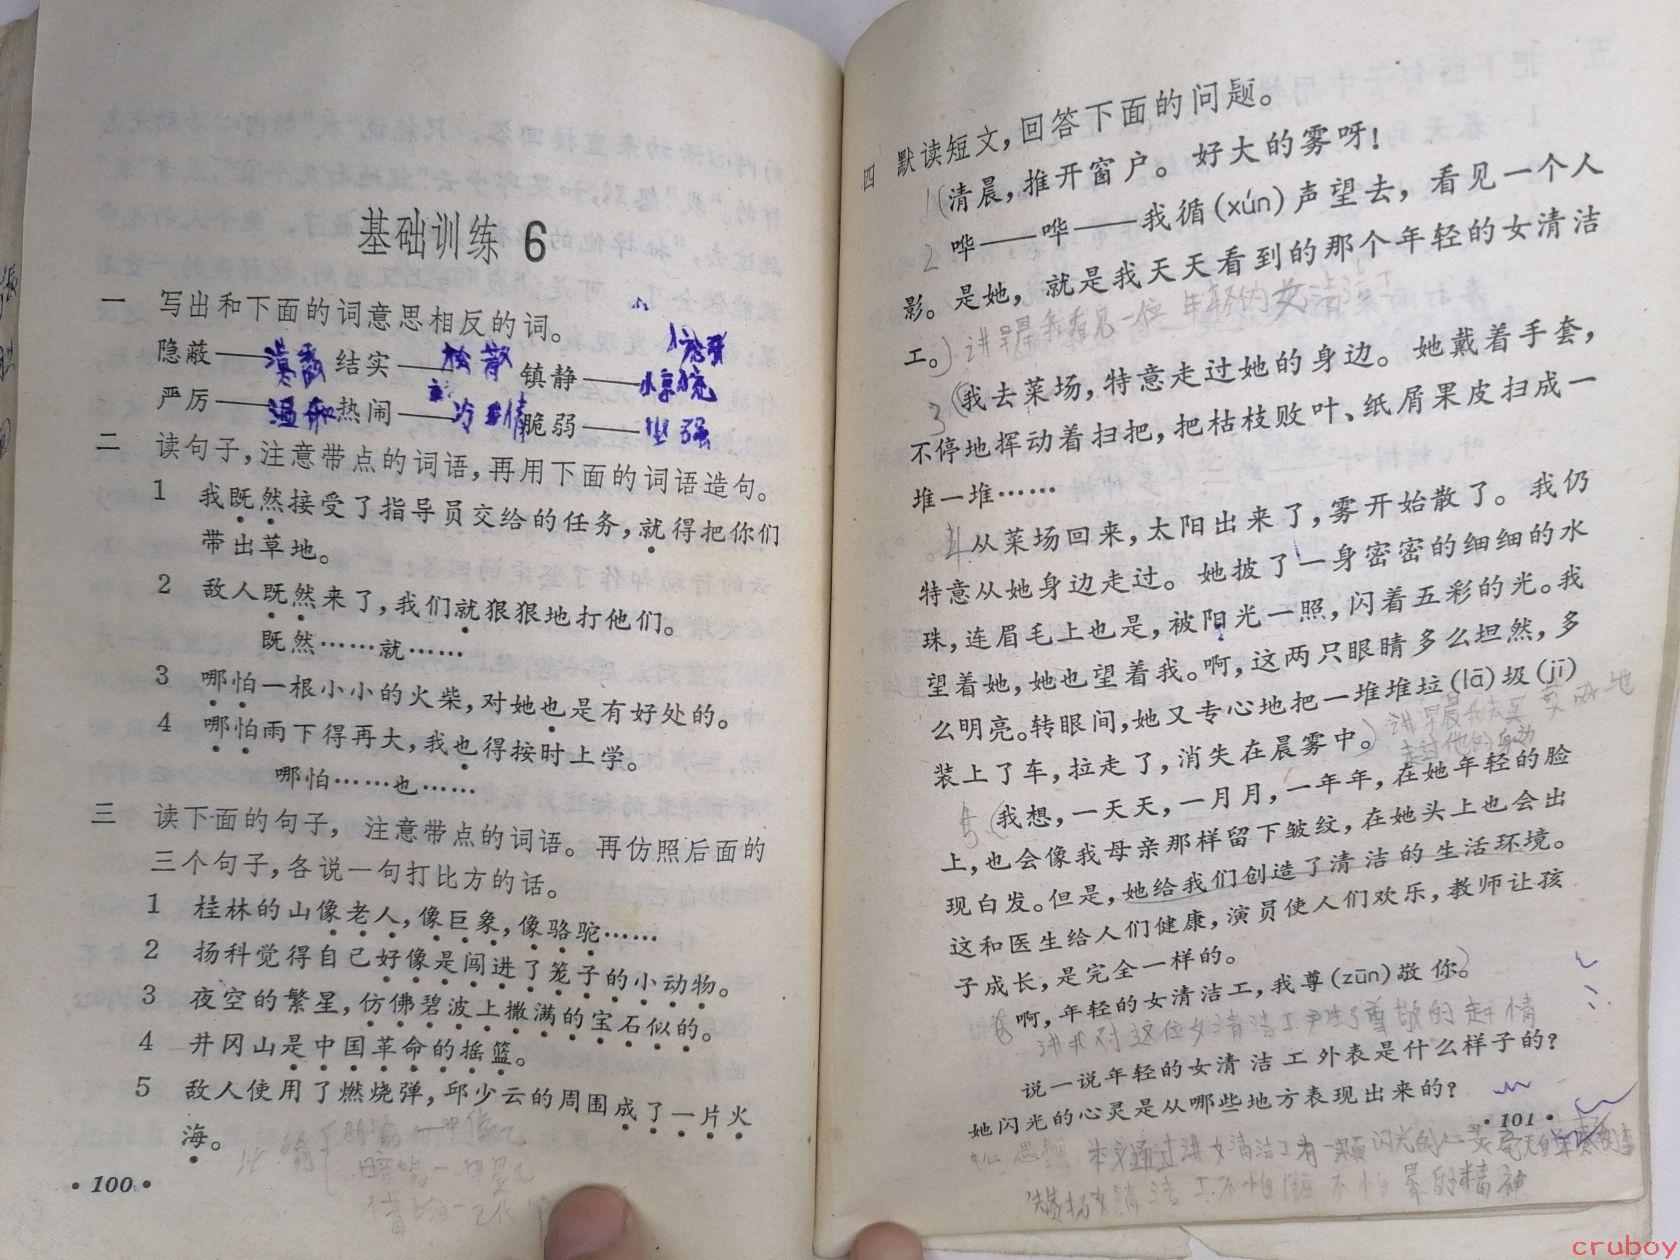 基础训练 6
一 写出和下面的词意思相反的词。
隐蔽—— 结实——松散 镇静——惊慌
严厉——温和 热闹——冷情 脆弱——坚强
二 读句子，注意带点的词语，再用下面的词语造句。
1 我既然接受了指导员交给的任务，就得把你们
带出草地。
2 敌人既然来了，我们就狠狠地打他们。
既然……就……
3 哪怕一根小小的火柴，对她也是有好处的。
4 哪怕雨下得再大，我也得按时上学。
哪怕……也……
三 读下面的句子，注意带点的词语。再仿照后面的
三个句子，各说一句打比方的话。
1 桂林的山像老人，像巨象，像骆驼……
2 扬科觉得自己好像是闯进了笼子的小动物。
3 夜空的繁星，仿佛碧波上撒满的宝石似的。
4 井冈山是中国革命的摇篮。
5 敌人使用了燃烧弹，邱少云的周围成了一片火
海。
·100·
四 默读短文，回答下面的问题。
1 清晨，推开窗户。好大的雾呀！
2 哗——哗——我循(xún)声望去，看见一个人
影。是她，就是我天天看到的那个年轻的女清洁
工。 讲早晨我看见一位年轻的女清洁工
3 我去菜场，特意走过她的身边。她戴着手套，
不停地挥动着扫把，把枯枝败叶、纸屑果皮扫成一
堆一堆……
4 从菜场回来，太阳出来了，雾开始散了。我仍
特意从她身边走过。她披了一身密密的细细的水
珠，连眉毛上也是，被阳光一照，闪着五彩的光。我
望着她，她也望着我。啊，这两只眼睛多么坦然，多
么明亮。转眼间，她又专心地把一堆堆垃(lā)圾(jī)
装上了车，拉走了，消失在晨雾中。
5 我想，一天天，一月月，一年年，在她年轻的脸
上，也会像我母亲那样留下皱纹，在她头上也会出
现白发。但是，她给我们创造了清洁的生活环境。
这和医生给人们健康，演员使人们欢乐，教师让孩
子成长，是完全一样的。
6 啊，年轻的女清洁工，我尊(zūn)敬你。
讲我对这位女清洁工产生了尊敬的赶情
说一说年轻的女清洁工外表是什么样子的？
她闪光的心灵是从哪些地方表现出来的？
·101·
中心思想 本文通过讲女清洁工有一颗闪光的心
赞扬女清洁工不怕 不怕累的精神
cruboy